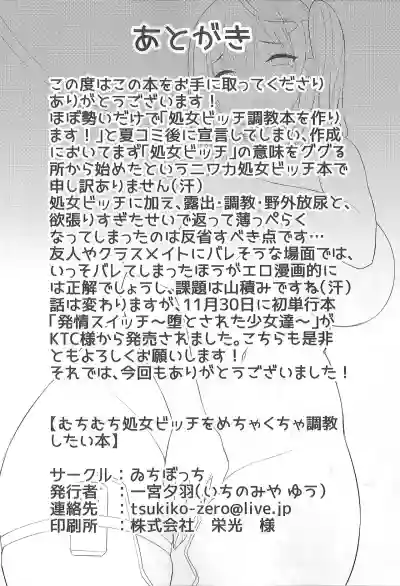 あとがき
この度はこの本をお手に取ってくださり
ありがとうございます!
ほぼ勢いだけで「処女ビッチ調教本を作り
ます!」と夏コミ後に宣言してしまい、作成
においてまず「処女ビッチ」の意味をググる
所から始めたというニワカ処女ビッチ本で
申し訳ありません(汗)
処女ビッチに加え、露出・調教・野外放尿と、
欲張りすぎたせいで返って薄っぺらく
なってしまったのは反省すべき点です…
友人やクラスメイトにバレそうな場面では、
いっそバレてしまったほうがエロ漫画的に
は正解でしょうし、課題は山積みですね(汗)
話は変わりますが、11月30日に初単行本
「発情スイッチ〜堕とされた少女達〜」が
KTC様から発売されました。こちらも是非
ともよろしくお願いします!
それでは、今回もありがとうございました!
【むちむち処女ビッチをめちゃくちゃ調教
したい本】
サークル:ゐちぼっち
発行者 :一宮夕羽(いちのみや ゆう)
連絡先 :tsukiko-zero@live.jp
印刷所 :株式会社 栄光 様